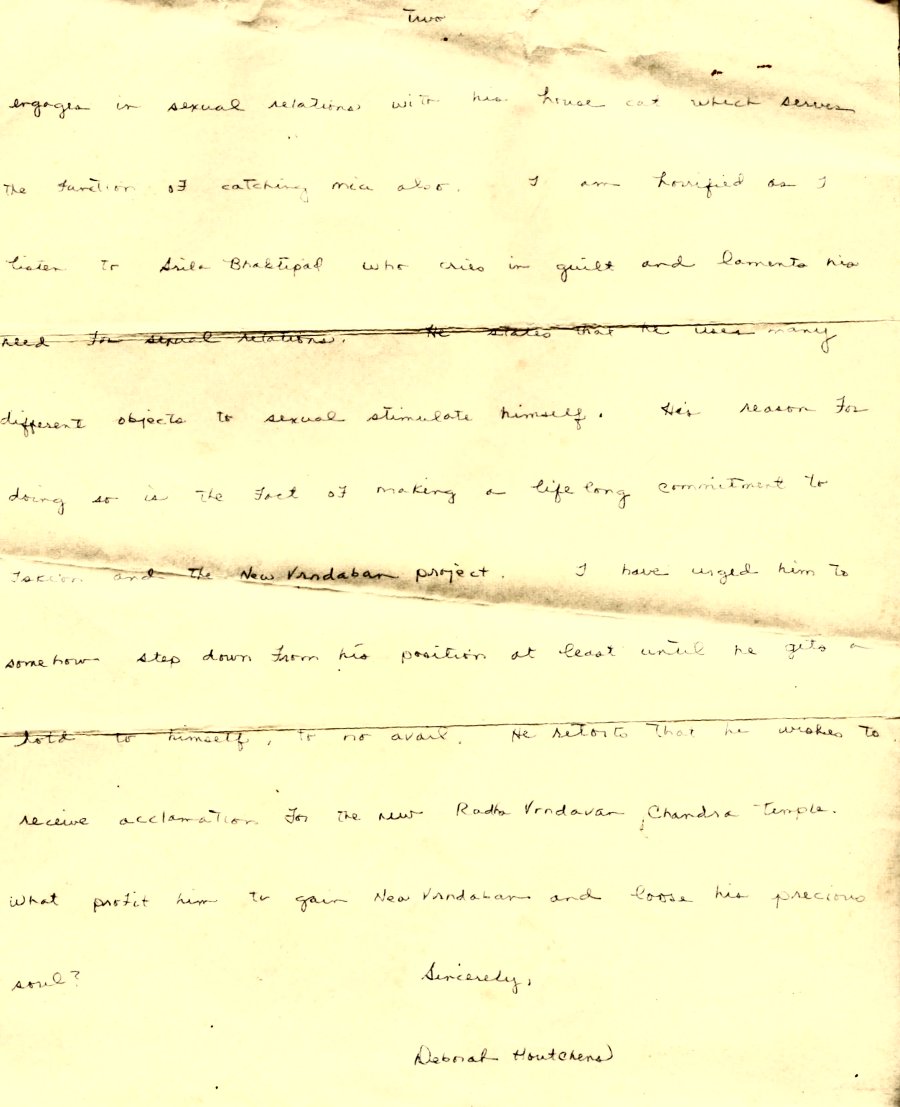 Two
engages in sexual relations with his house cat which serves
the function of catching mice also. I am horrified as I
listen to Srila Bhaktipad who cries in guilt and laments his
need for sexual relations. He states that he uses many
different objects to sexual stimulate himself. His reason for
doing so is the fact of making a life long commitment to
Iskcon and the New Vrndaban project. I have urged him to
somehow step down from his position at least until he gets a
hold to himself, to no avail. He retorts that he wishes to
receive acclamation for the new Radha Vrndavan Chandra Temple.
What profit him to gain New Vrndaban and loose his precious
soul?
Sincerely,
Deborah Houtchens